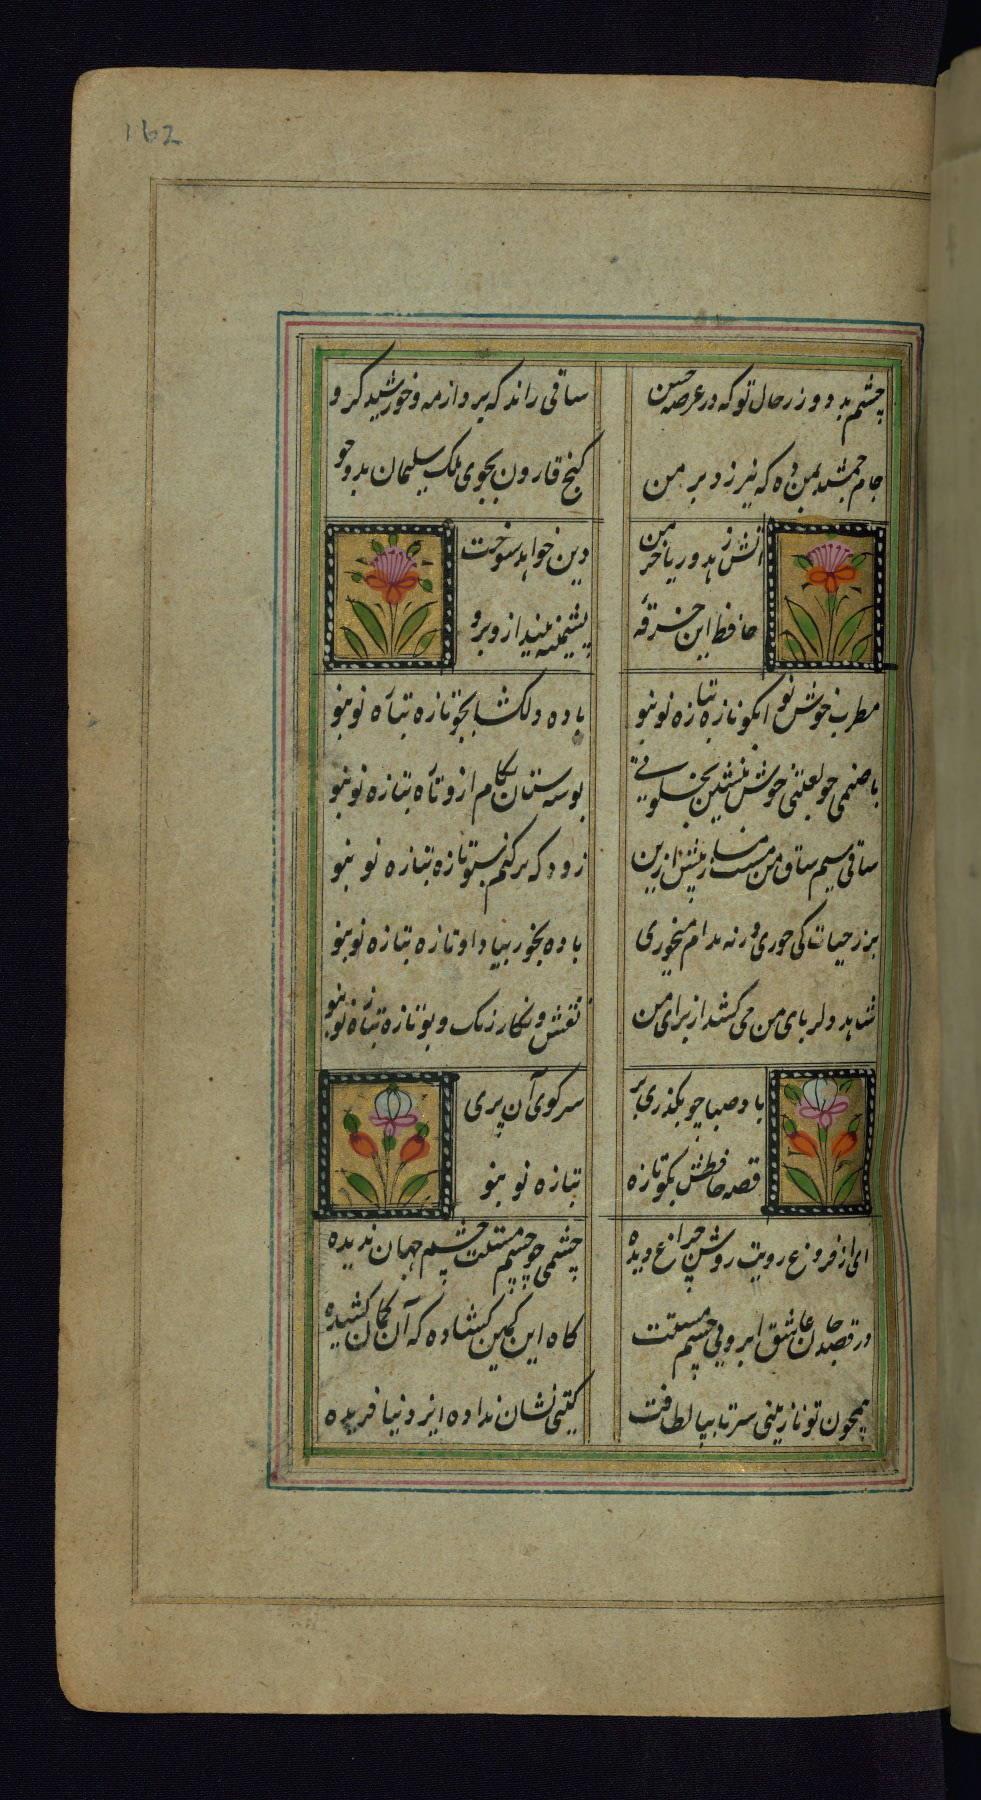 162
چشم بد دور ز حال تو که در عرصه حسن ساقی راند که برد از مه و خورشید کرو
جام جمشید بمن ده که نیرزد بر من کنج قارون بجوی ملک سلیمان بدو جو
آتش زهد و ریا خرمن دین خواهد سوخت
حافظ این خرقه پشمینه بینداز و برو
مطرب خوش نوا بکو تازه بتازه نو بنو باده دلکشا بجو تازه بتازه نو بنو
با صنمی جو لعبتی خوش بنشین بخلوتی بوسه ستان بکام ازو تازه بتازه نو بنو
ساقی سیم ساق من مست ز پیش ازین زود که پر کنم سبو تازه بتازه نو بنو
بر ز حیات کی خوری ورنه مدام میخوری باده بخور بیاد او تازه بتازه نو بنو
شاهد دلربای من می کشد از برای من نقش و نکار و رنک و بو تازه بتازه نو بنو
باد صبا چو بکذری بر سر کوی آن پری
قصه حافظش بکو تازه بتازه نو بنو
ای از فروغ رویت روشن چراغ دیده چشمی چو چشم مستت چشم جهان ندیده
در قصد جان عاشق ابروی و چشم مستت کاه این کمین کشاده که آن کمان کشیده
همچون تو نازنینی سر تا بپا لطافت کیتی نشان نداده ایزد نیافریده